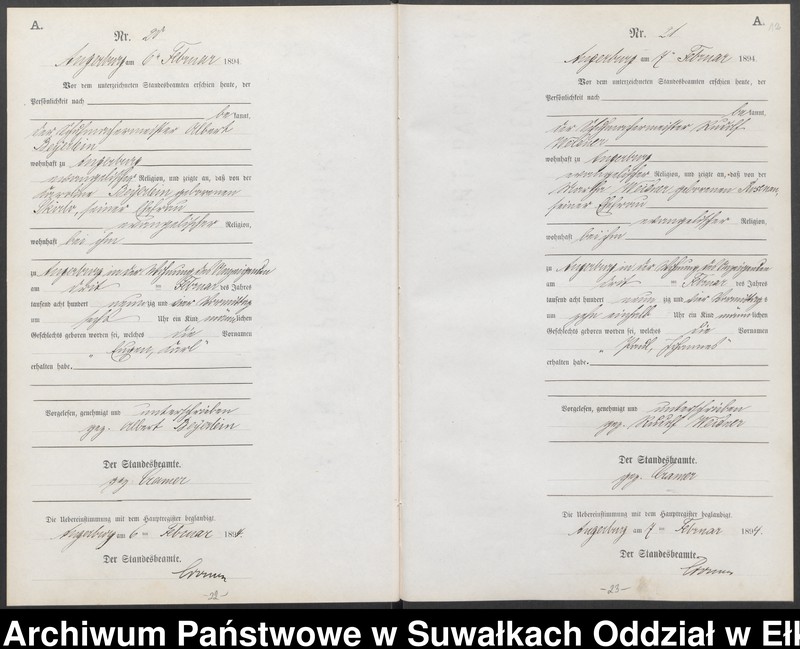 A.
Nr. 20
Angerburg am 6ten Februar 1894
Vor dem unterzeichneten Standesbeamten erschien heute, der
Persönlichkeit nach
bekannt,
der Albert
Beyerlein
wohnhaft zu Angerburg
evangelischer Religion, und zeigte an, daß von der
Caroline Beyerlein geborenen
seiner Ehefrau
evangelischer Religion,
wohnhaft bei ihm
zu Angerburg in der Wohnung des Anzeigenden
am drit ten Februar des Jahres
tausend acht hundert neun zig und vier Vormittags
um sechs Uhr ein Kind männlichen
Geschlechts geboren worden sei, welches die Vornamen
„Eugen, Carl“
erhalten habe.
Vorgelesen, genehmigt und unterschrieben
gez. Albert Beyerlein
Der Standesbeamte.
gez. Cramer
Die Uebereinstimmung mit dem Hauptregister beglaubigt.
Angerburg am 6ten Februar 1894.
Der Standesbeamte.
Cramer
-22-
A.
Nr. 21
Angerburg am 7ten Februar 1894
Vor dem unterzeichneten Standesbeamten erschien heute, der
Persönlichkeit nach
bekannt,
der Rudolf
Weisner
wohnhaft zu Angerburg
evangelischer Religion, und zeigte an, daß von der
Martha Weisner geborenen
seiner Ehefrau
evangelischer Religion,
wohnhaft bei ihm
zu Angerburg in der Wohnung des Anzeigenden
am drit ten Februar des Jahres
tausend acht hundert neun zig und vier Vormittags
um zehn einhalb Uhr ein Kind männlichen
Geschlechts geboren worden sei, welches die Vornamen
„Paul, Johannes“
erhalten habe.
Vorgelesen, genehmigt und unterschrieben
gez. Rudolf Weisner
Der Standesbeamte.
gez. Cramer
Die Uebereinstimmung mit dem Hauptregister beglaubigt.
Angerburg am 7ten Februar 1894.
Der Standesbeamte.
Cramer
-23-
Archiwum Państwowe w Suwałkach Oddział w Ełk